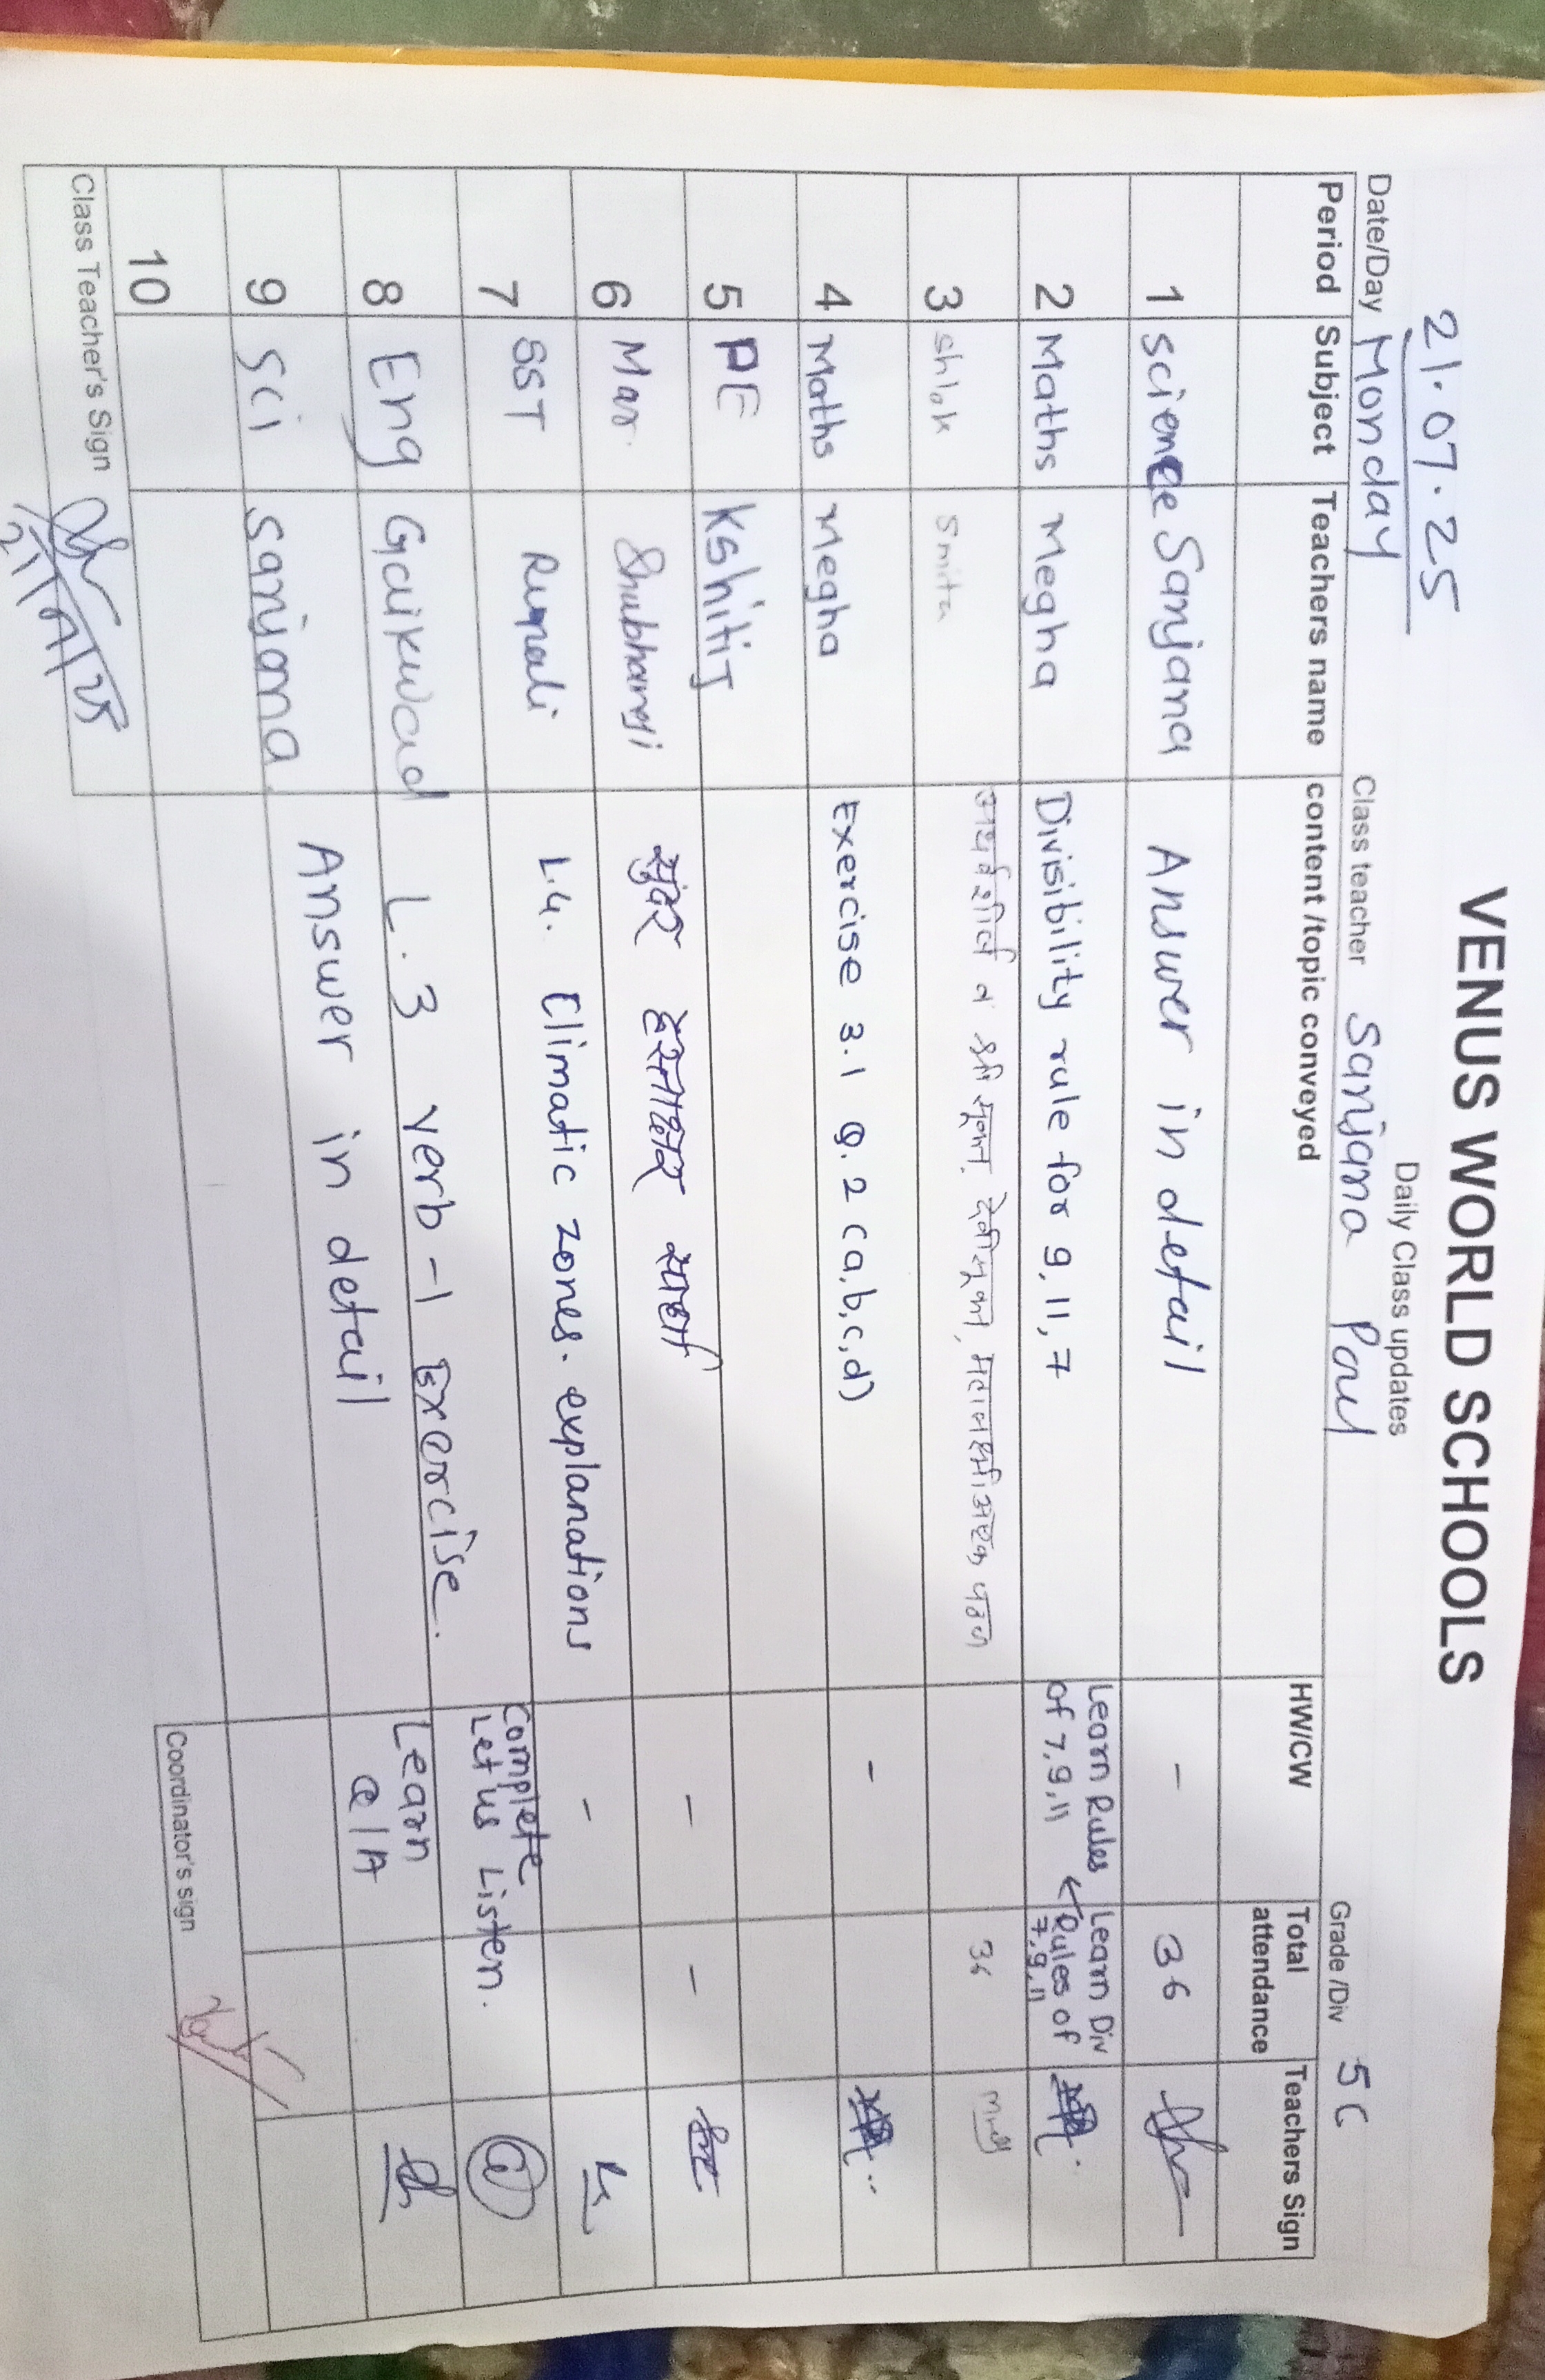 VENUS WORLD SCHOOLS
Daily Class updates
21.07.25
Date/Day Monday Class teacher Sanjana Paul Grade /Div 5 C
Period Subject Teachers name content /topic conveyed HW/CW Total attendance Teachers Sign
1 science Sanjana Answer in detail - 36
2 Maths Megha Divisibility rule for 9, 11, 7 Learn Rules of 7, 9, 11 Learn Div Rules of 7, 9, 11
3 shlok Smita अथर्वशीर्ष व श्री सूक्त, देवीसूक्त, महालक्ष्मी अष्टक पठण 36
4 Maths Megha Exercise 3.1 Q. 2 (a, b, c, d) -
5 PE Kshitij - -
6 Mar. Shubhangi सुंदर हस्ताक्षर स्पर्धा -
7 SST Rupali L.4. Climatic zones. explanations Complete Let us Listen.
8 Eng Gaikwad L.3 Verb - 1 Exercise. Learn Q/A
9 Sci Sanjana Answer in detail
10
Class Teacher's Sign Coordinator's sign